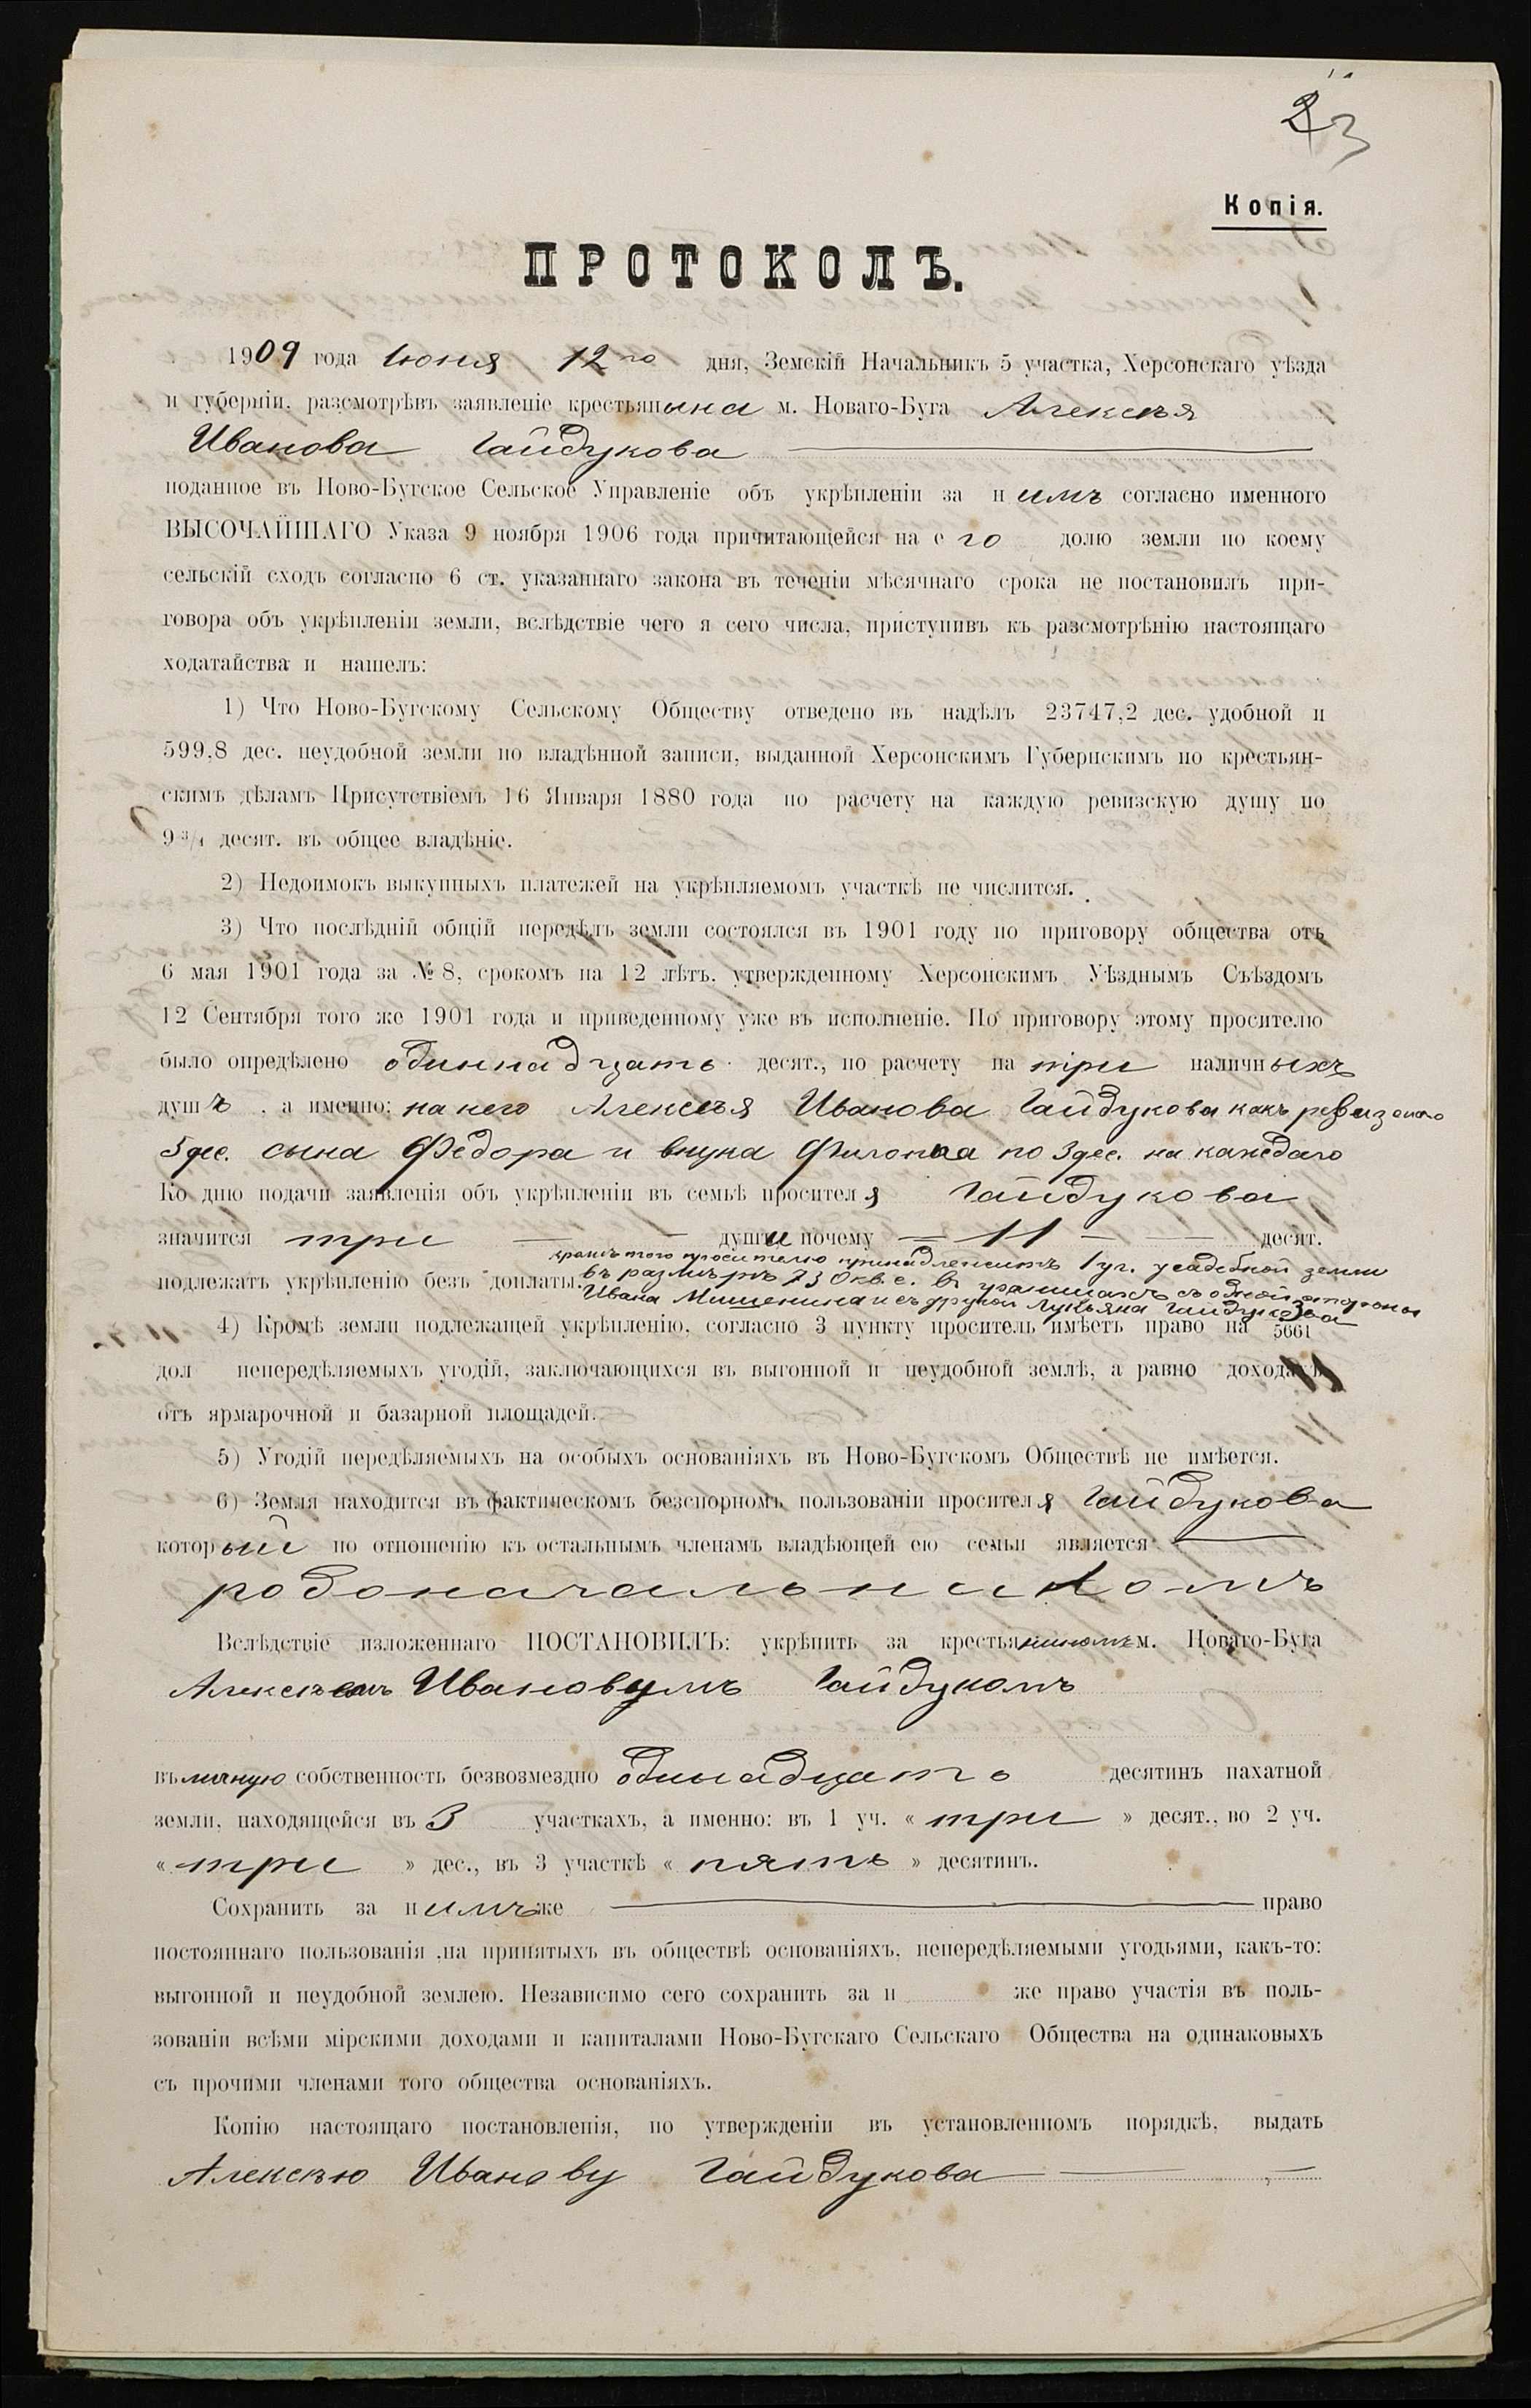 23
Копія.
ПРОТОКОЛЪ.
1909 года Іюня 12го дня, Земскій Начальникъ 5 участка, Херсонскаго уѣзда
и губерніи, разсмотрѣвъ заявленіе крестьянина м. Новаго-Буга Алексѣя
Иванова Гайдукова
поданное въ Ново-Бугское Сельское Управленіе объ укрѣпленіи за нимъ согласно именного
ВЫСОЧАЙШАГО Указа 9 ноября 1906 года причитающейся на его долю земли по коему
сельскій сходъ согласно 6 ст. указаннаго закона въ теченіи мѣсячнаго срока не постановилъ при-
говора объ укрѣпленіи земли, вслѣдствіе чего я сего числа, приступивъ къ разсмотрѣнію настоящаго
ходатайства и нашелъ:
1) Что Ново-Бугскому Сельскому Обществу отведено въ надѣлъ 23747,2 дес. удобной и
599,8 дес. неудобной земли по владѣнной записи, выданной Херсонскимъ Губернскимъ по крестьян-
скимъ дѣламъ Присутствіемъ 16 Января 1880 года по расчету на каждую ревизскую душу по
9 3/4 десят. въ общее владѣніе.
2) Недоимокъ выкупныхъ платежей на укрѣпляемомъ участкѣ не числится.
3) Что послѣдній общій передѣлъ земли состоялся въ 1901 году по приговору общества отъ
6 мая 1901 года за № 8, срокомъ на 12 лѣтъ, утвержденному Херсонскимъ Уѣзднымъ Съѣздомъ
12 Сентября того же 1901 года и приведенному уже въ исполненіе. По приговору этому просителю
было опредѣлено одиннадцать десят., по расчету на три наличныхъ
душъ, а именно: на него Алексѣя Иванова Гайдукова какъ ревизскаго
5 дес. сына Федора и внука по 3 дес. на каждаго
Ко дню подачи заявленія объ укрѣпленіи въ семьѣ просителя Гайдукова
значится три — — души почему — 11 — — десят.
кромѣ того просителю принадлежитъ 1 уч. усадебной земли
подлежатъ укрѣпленію безъ доплаты. въ размѣрѣ 730 кв. с. въ границахъ съ одной стороны
Ивана Мишенина и съ другой Лукьяна Гайдукова
4) Кромѣ земли подлежащей укрѣпленію, согласно 3 пункту проситель имѣетъ право на 3/5661
дол непередѣляемыхъ угодій, заключающихся въ выгонной и неудобной землѣ, а равно доходахъ
отъ ярмарочной и базарной площадей.
5) Угодій передѣляемыхъ на особыхъ основаніяхъ въ Ново-Бугскомъ Обществѣ не имѣется.
6) Земля находится въ фактическомъ безспорномъ пользованіи просителя Гайдукова
который по отношенію къ остальнымъ членамъ владѣющей ею семьи является —
родоначальникомъ
Вслѣдствіе изложеннаго ПОСТАНОВИЛЪ: укрѣпить за крестьяниномъ м. Новаго-Буга
Алексѣемъ Ивановымъ Гайдукомъ
въ личную собственность безвозмездно одинадцать десятинъ пахатной
земли, находящейся въ 3 участкахъ, а именно: въ 1 уч. « три » десят., во 2 уч.
« три » дес., въ 3 участкѣ « пять » десятинъ.
Сохранить за нимъ же — право
постояннаго пользованія на принятыхъ въ обществѣ основаніяхъ, непередѣляемыми угодьями, какъ-то:
выгонной и неудобной землею. Независимо сего сохранить за н же право участія въ поль-
зованіи всѣми мірскими доходами и капиталами Ново-Бугскаго Сельскаго Общества на одинаковыхъ
съ прочими членами того общества основаніяхъ.
Копію настоящаго постановленія, по утвержденіи въ установленномъ порядкѣ, выдать
Алексѣю Иванову Гайдукова — —